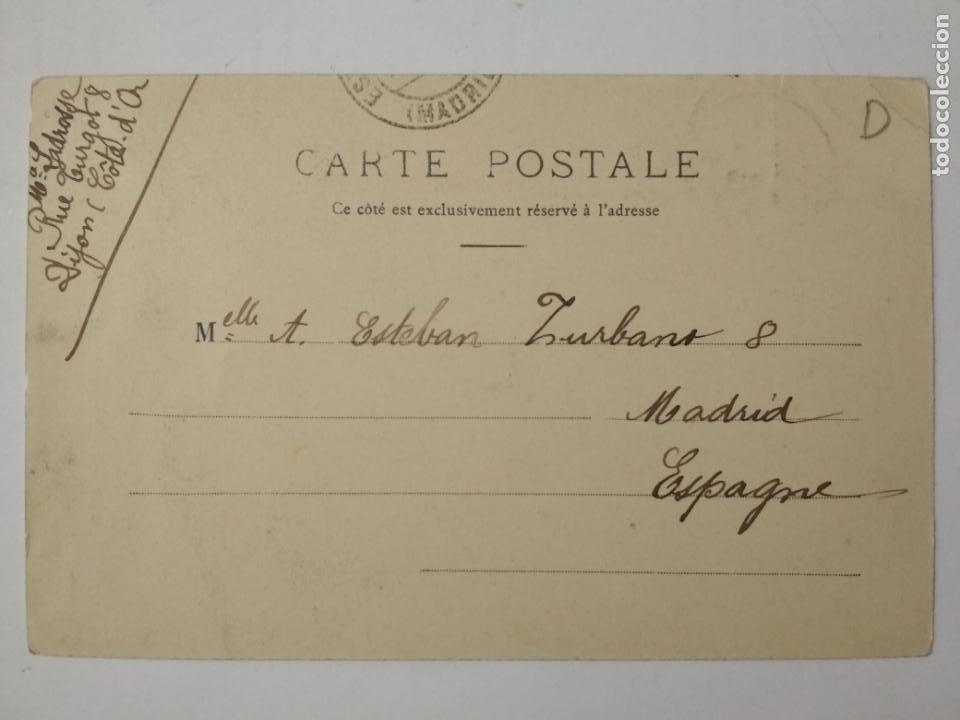 Rue Turgot 8
Dijon (Côte d'Or
ES
(MADRI
D
CARTE POSTALE
Ce côté est exclusivement réservé à l'adresse
Melle A. Esteban Zurbano 8
Madrid
Espagne
todocoleccion.net